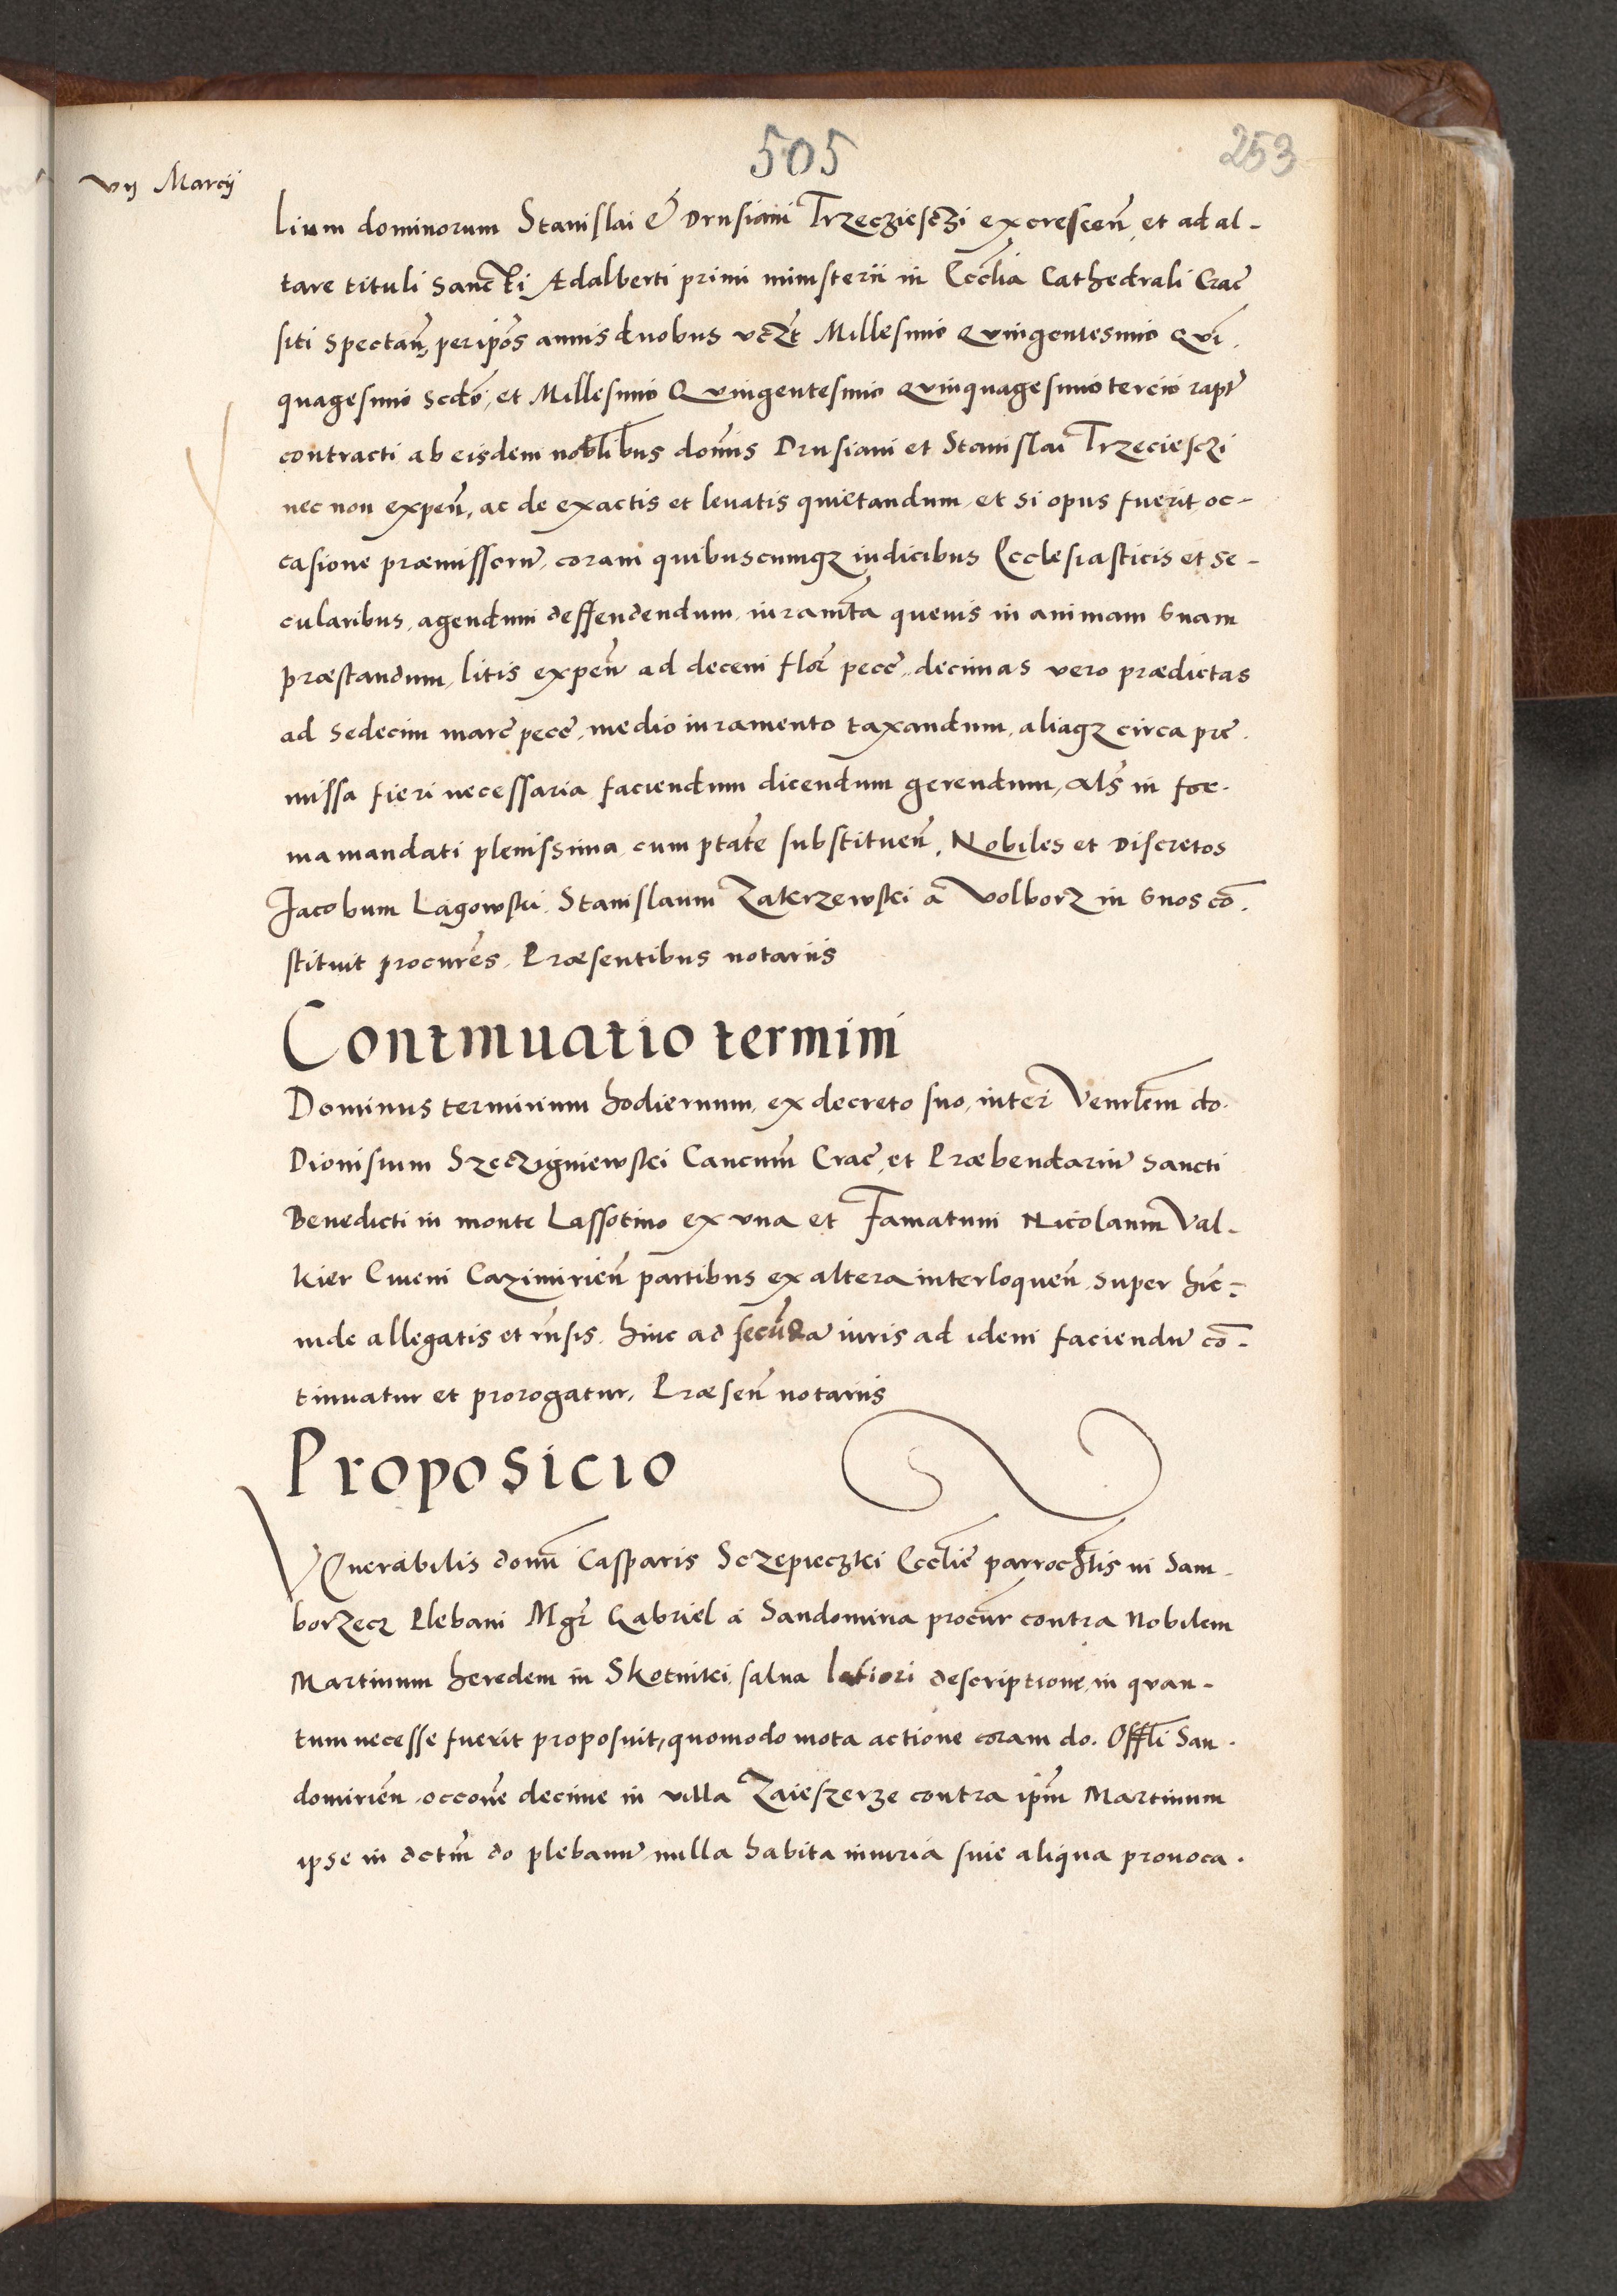 505
253
vij Marcij
lium dominorum Stanislai & Drusiani Trzeczieschi excrescen̄, et ad al-
tare tituli Sancti Adalberti primi ministerii in Eccl̄ia Cathedrali Crac̄
siti spectan̄, per ip̄os annis duobus vcz̄t Millesimo Quingentesimo Qui-
quagesimo Scdō, et Millesimo Quingentesimo Quinquagesimo tercio rapt̄
contracti ab eisdem nobl̄ibus dom̄is Drusiani et Stanislai Trzeciesczi
nec non expen̄, ac de exactis et leuatis quietandum, et si opus fuerit, oc-
casione præmissorū, coram quibuscumqz iudicibus Ecclesiasticis et se-
cularibus, agendum deffendendum, iuram̄ta queuis in animam suam
præstandum, litis expen̄ ad decem flor̄ pecc̄, decimas vero prædictas
ad sedecim marc̄ pecc̄, medio iuramento taxandum, aliaqz circa pre-
missa fieri necessaria faciendum dicendum gerendum, als̄ in for-
ma mandati plenissima, cum ptāte substituen̄, Nobiles et Discretos
Jacobum Lagowski, Stanislaum Zakrzewski a Volborz in suos cō-
stituit procurēs, Præsentibus notariis
Continuatio termini
Dominus terminum hodiernum, ex decreto suo, inter Venrl̄em do.
Dionisium Szczigniewski Cancum̄ Crac̄, et Præbendariū Sancti
Benedicti in monte Lassotino ex vna et Famatum Nicolaum Val-
kier Ciuem Cazimirien̄ partibus ex altera interloquen̄, super hīc-
inde allegatis et rn̄sis, hinc ad secūda iuris ad idem faciendū cō-
tinuatur et prorogatur, Præsen̄ notariis
Proposicio
VEnerabilis domī Casparis Sczepieczki Eccl̄ie parrochl̄is in Sam-
borzecz Plebani Mgr̄ Gabriel a Sandomiria procur̄ contra Nobilem
Martinum heredem in Skotniki, salua latiori descriptione, in quan-
tum necesse fuerit proposuit, quomodo mota actione coram do. Offl̄i San-
domirien̄, occōne decime in villa Zaieszerze contra ip̄m Martinum
ipse in dctm̄ do plebanū, nulla habita iniuria siue aliqua prouoca-